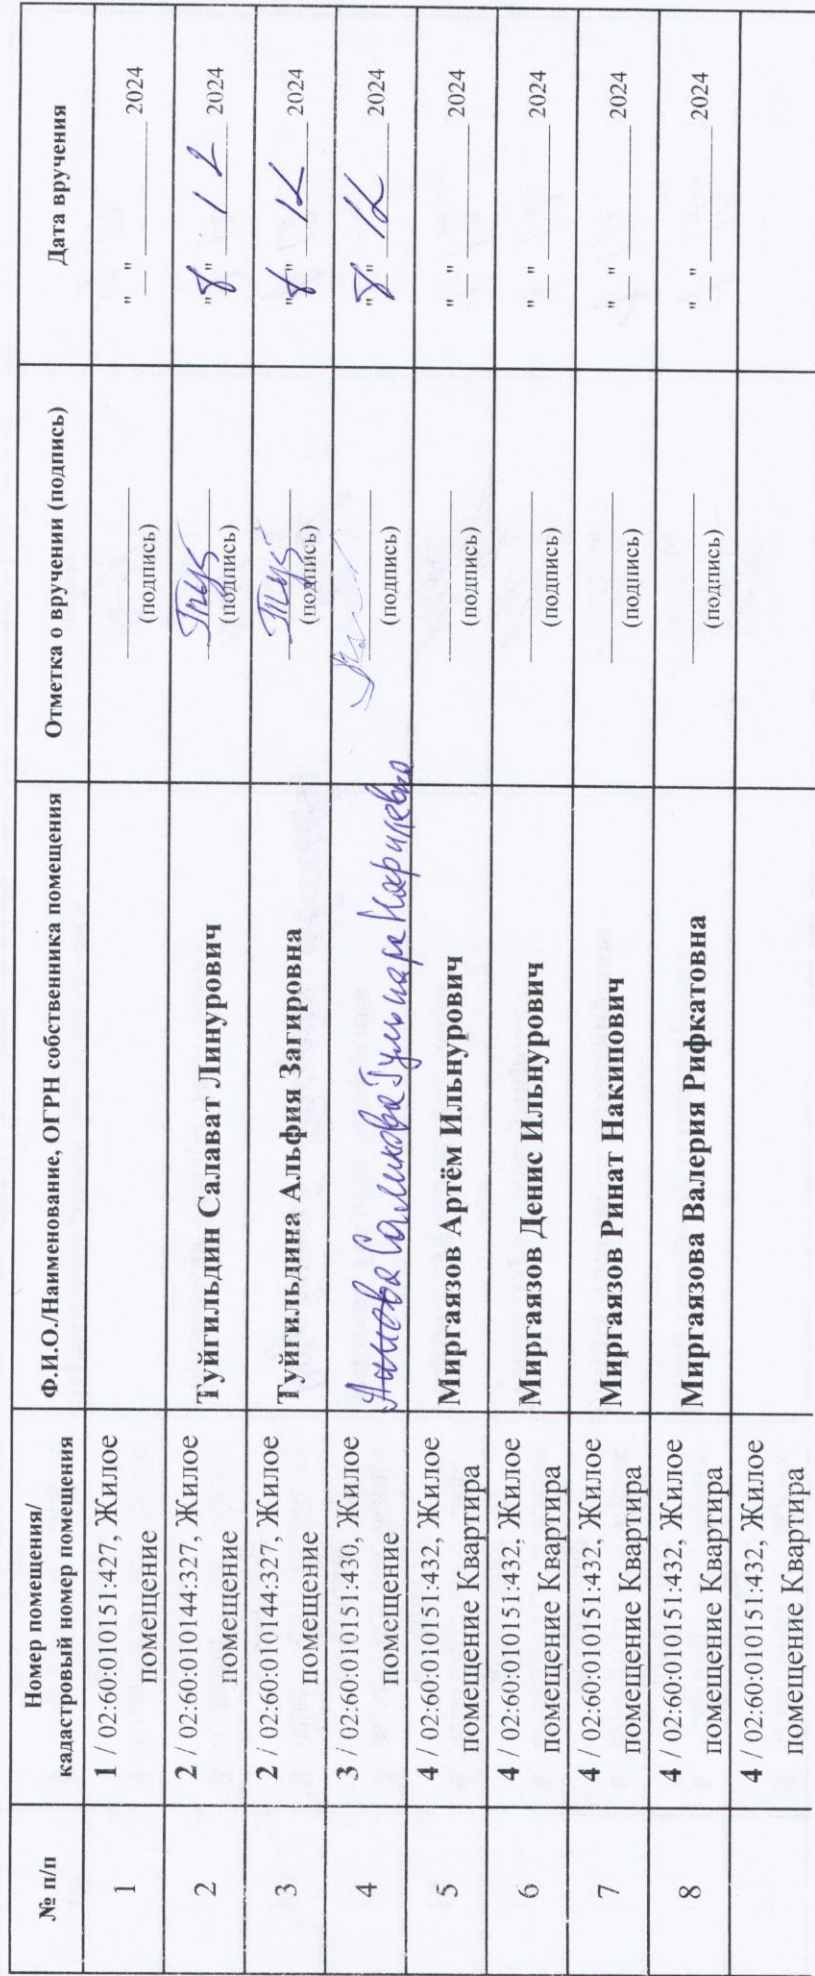 № п/п
Номер помещения/
кадастровый номер помещения
Ф.И.О./Наименование, ОГРН собственника помещения
Отметка о вручении (подпись)
Дата вручения
1
1 / 02:60:010151:427, Жилое
помещение
(подпись)
"__" ________ 2024
2
2 / 02:60:010144:327, Жилое
помещение
Туйгильдин Салават Линурович
(подпись)
"8" 12 2024
3
2 / 02:60:010144:327, Жилое
помещение
Туйгильдина Альфия Загировна
(подпись)
"8" 12 2024
4
3 / 02:60:010151:430, Жилое
помещение
Саликова Гульнара Нарилевна
(подпись)
"8" 12 2024
5
4 / 02:60:010151:432, Жилое
помещение Квартира
Миргаязов Артём Ильнурович
(подпись)
"__" ________ 2024
6
4 / 02:60:010151:432, Жилое
помещение Квартира
Миргаязов Денис Ильнурович
(подпись)
"__" ________ 2024
7
4 / 02:60:010151:432, Жилое
помещение Квартира
Миргаязов Ринат Накипович
(подпись)
"__" ________ 2024
8
4 / 02:60:010151:432, Жилое
помещение Квартира
Миргаязова Валерия Рифкатовна
(подпись)
"__" ________ 2024
4 / 02:60:010151:432, Жилое
помещение Квартира